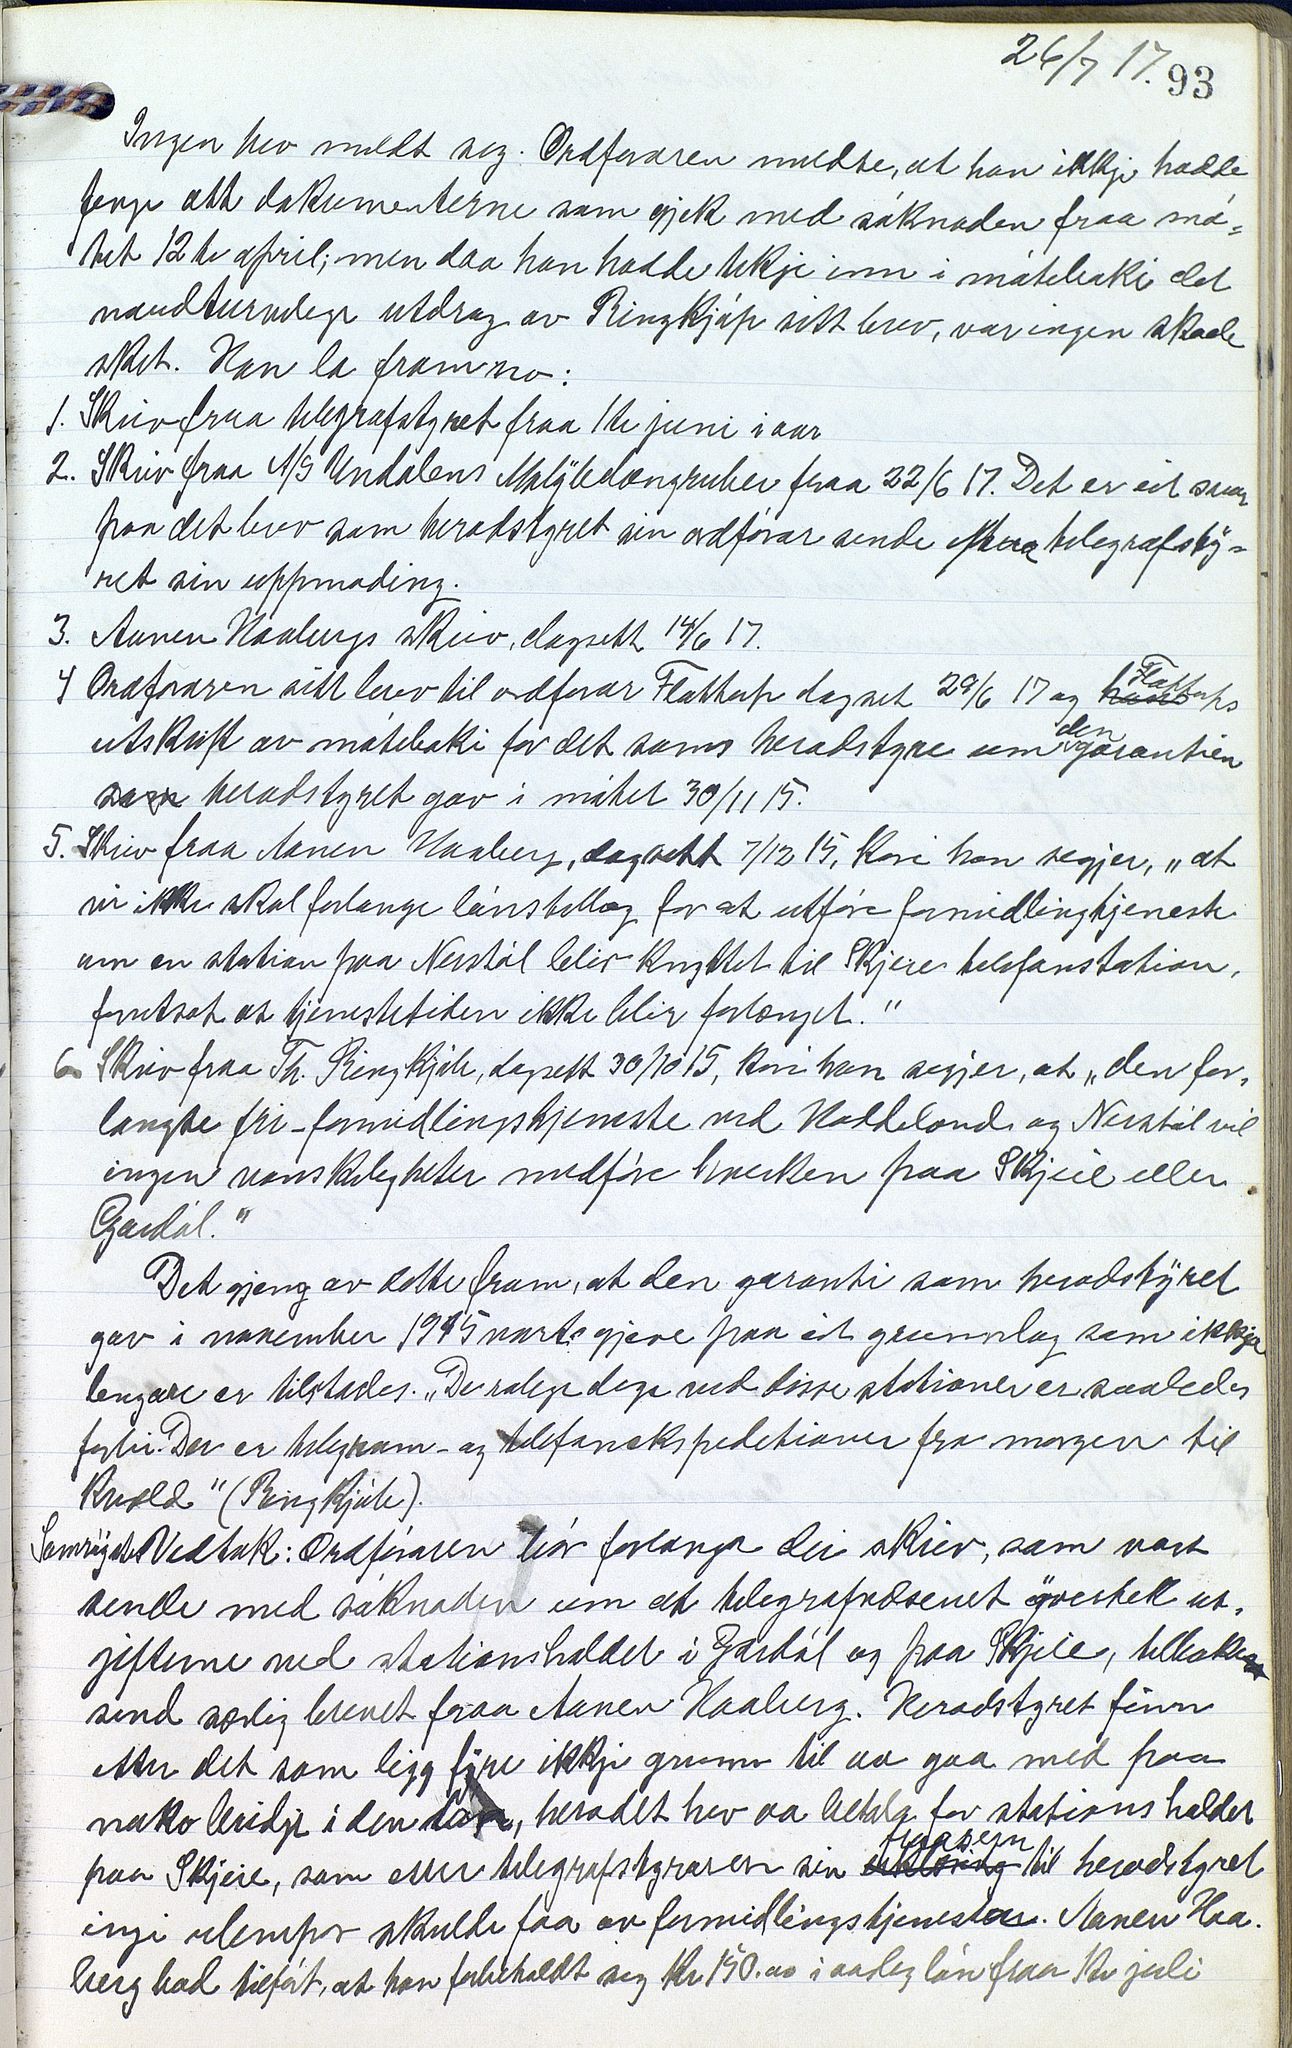 26/7 17. 93
Ingen hev meldt seg. Ordføraren meldte, at han ikkje hadde
fenge att dokumenterne som gjek med søknaden fraa mø-
tet 12te april; men daa han hadde tekje inn i møteboki det
naudturvlege utdrag av Ringkjøb sitt brev, var ingen skade
sket. Han la fram no:
1. Skriv fraa telegrafstyret fraa 1te juni i aar
2. Skriv fraa A/S Undalens Molybdængruber fraa 22/6 17. Det er eit svar
paa det brev som heradstyret sin ordførar sende etter telegrafsty-
ret sin uppmoding.
3. Aanen Haabergs skriv, dagsett 14/6 17.
4 Ordføraren sitt brev til ordførar Flottorp dagset 29/6 17 og Flottorps
utskrift av møteboki for det sams heradstyre um den garantien
som heradstyret gav i møtet 30/11 15.
5. Skriv fraa Aanen Haaberg, dagsett 7/12 15, kori han segjer, „at
vi ikke skal forlange lønstillæg for at utføre formidlingtjeneste
om en station paa Nerstøl blir knyttet til Skjeie telefonstation,
forutsat at tjenestetiden ikke blir forlænget."
6. Skriv fraa Th. Ringkjøb, dagsett 30/10 15, kori han segjer, at „den for-
langte fri-formidlingstjeneste ved Haddeland og Nerstøl vil
ingen vanskeligheter medføre hverken paa Skjeie eller
Gardøl."
Det gjeng av dette fram, at den garanti som heradstyret
gav i november 1915 vart gjeve paa eit grunnlag som ikkje
lengare er tilstades. „De rolige dage ved disse stationer er saaledes
forbi. Der er telegram- og telefonekspeditioner fra morgen til
kvæld" (Ringkjøb).
Samrøystes Vedtak: Ordføraren bør forlange dei skriv, som vart
sende med søknaden um at telegrafvæsenet overtek ut-
gifterne ved stationshaldet i Gardøl og paa Skjeie, tilbake
send særlig brevet fraa Aanen Haaberg. Heradstyret finn
etter det som ligg fyre ikkje grunn til aa gaa med paa
noko bridge i den, heradet hev aa betala for stationshaldet
paa Skjeie, som etter telegrafstyraren sin til heradstyret
ingi ulempor skulde faa av formidlingstjenesten. Aanen Haa-
berg had tilført, at han forbeholdt seg kr 150.00 i aarleg løn fraa 1te juli